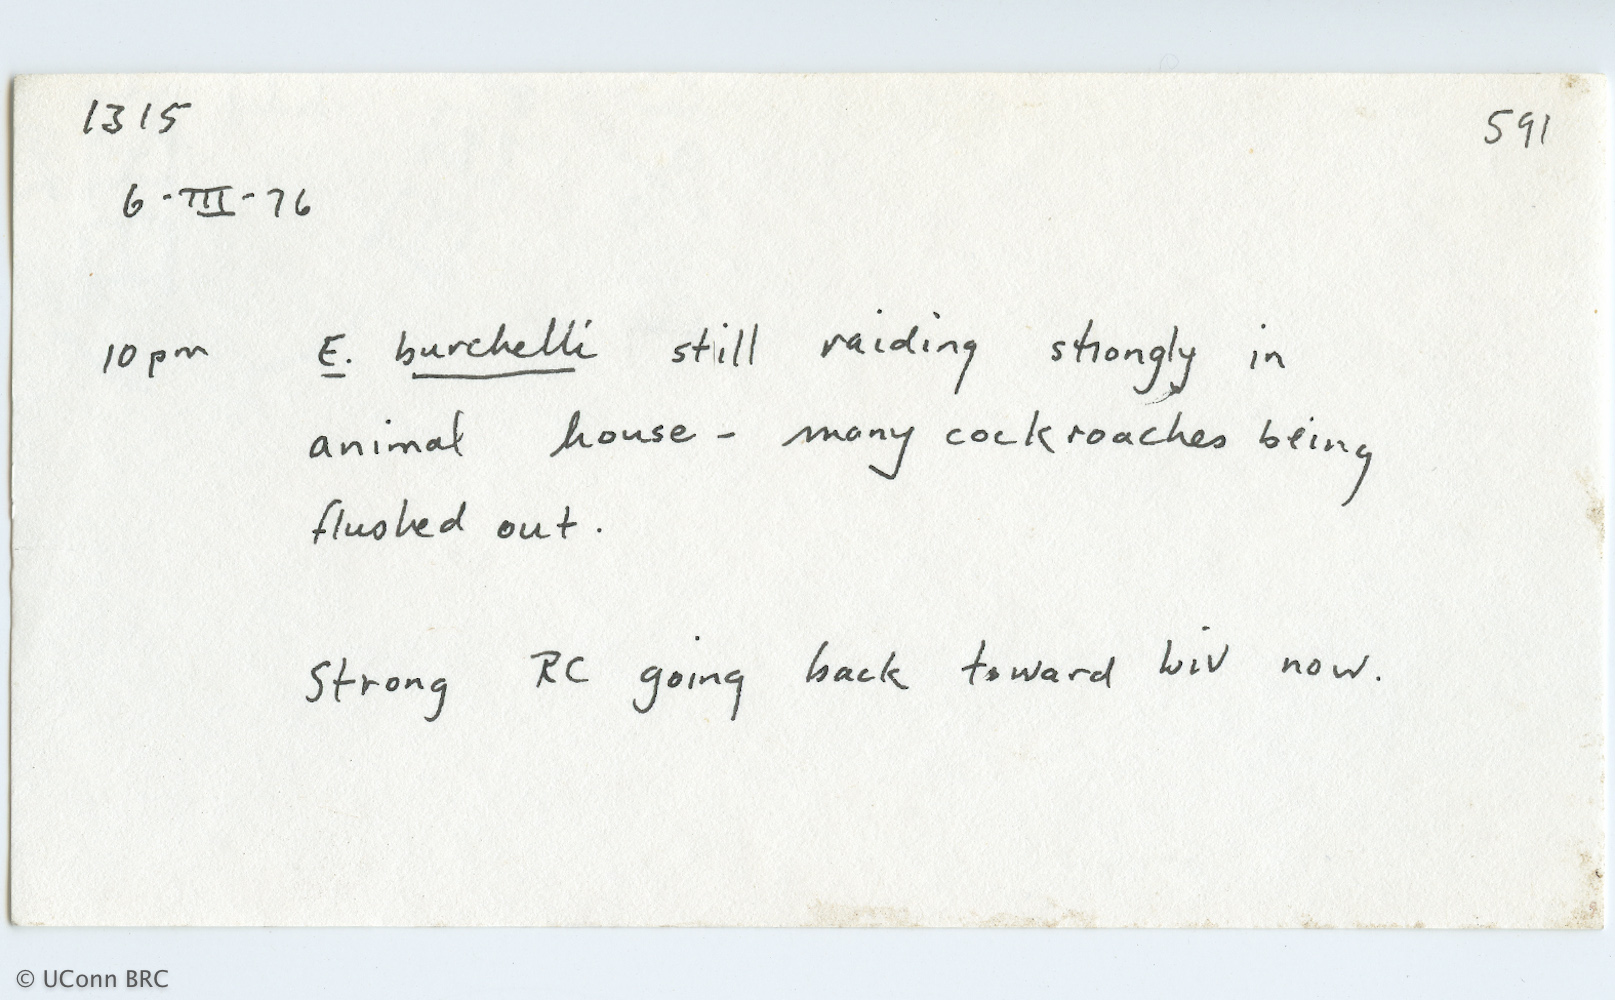 1315
591
6-III-76
10pm E. burchelli still raiding strongly in
animal house - many cockroaches being
flushed out.
Strong RC going back toward biv now.
© UConn BRC